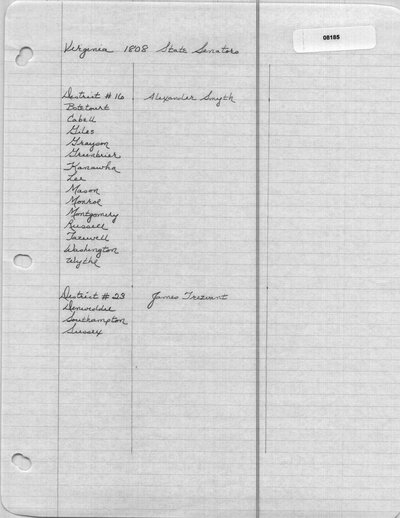 08185
Virginia 1808 State Senators
District # 16 Alexander Smyth
Botetourt
Cabell
Giles
Grayson
Greenbrier
Kanawha
Lee
Mason
Monroe
Montgomery
Russell
Tazewell
Washington
Wythe
District # 23 James Trezvant
Dinwiddie
Southampton
Sussex